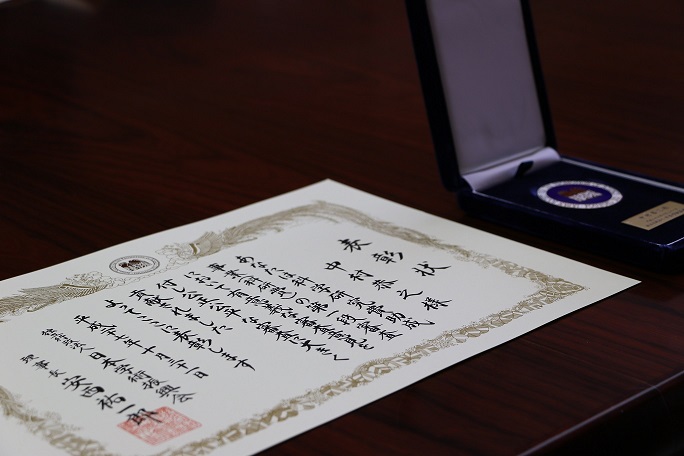 表彰状
中村恭之様
あなたは科学研究費助成
事業(科研費)の第一段審査
において有意義な審査意見を
付し公正・公平な審査に大きく
貢献されました
よってここに表彰します
平成二十七年十月三十一日
独立行政法人日本学術振興会
理事長 安西祐一郎